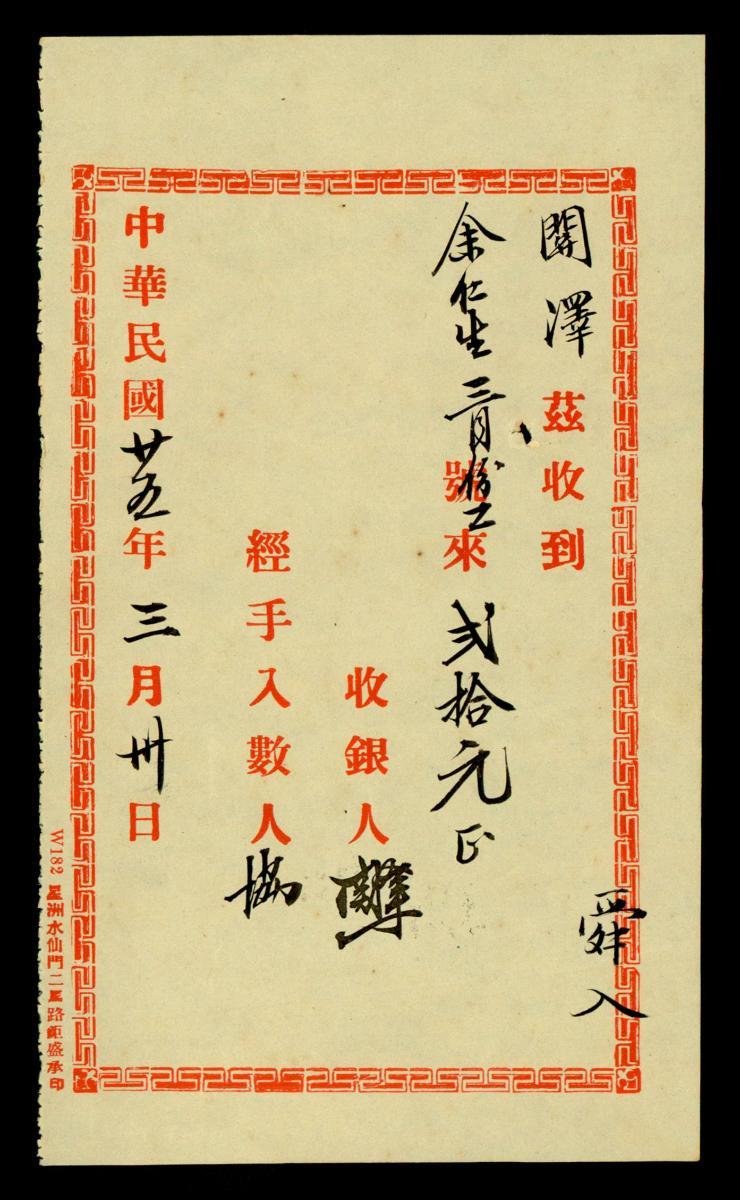 關澤茲收到
余仁生三月份工號來弍拾元正
收銀人
經手入數人協
中華民國廿五年三月卅日
舜入
W182 星洲水仙門二馬路鉅盛承印